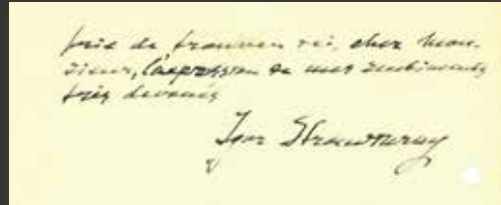 prie de trouver ici, cher Mon-
sieur, l'expression de mes sentiments
très dévoués
Igor Strawinsky